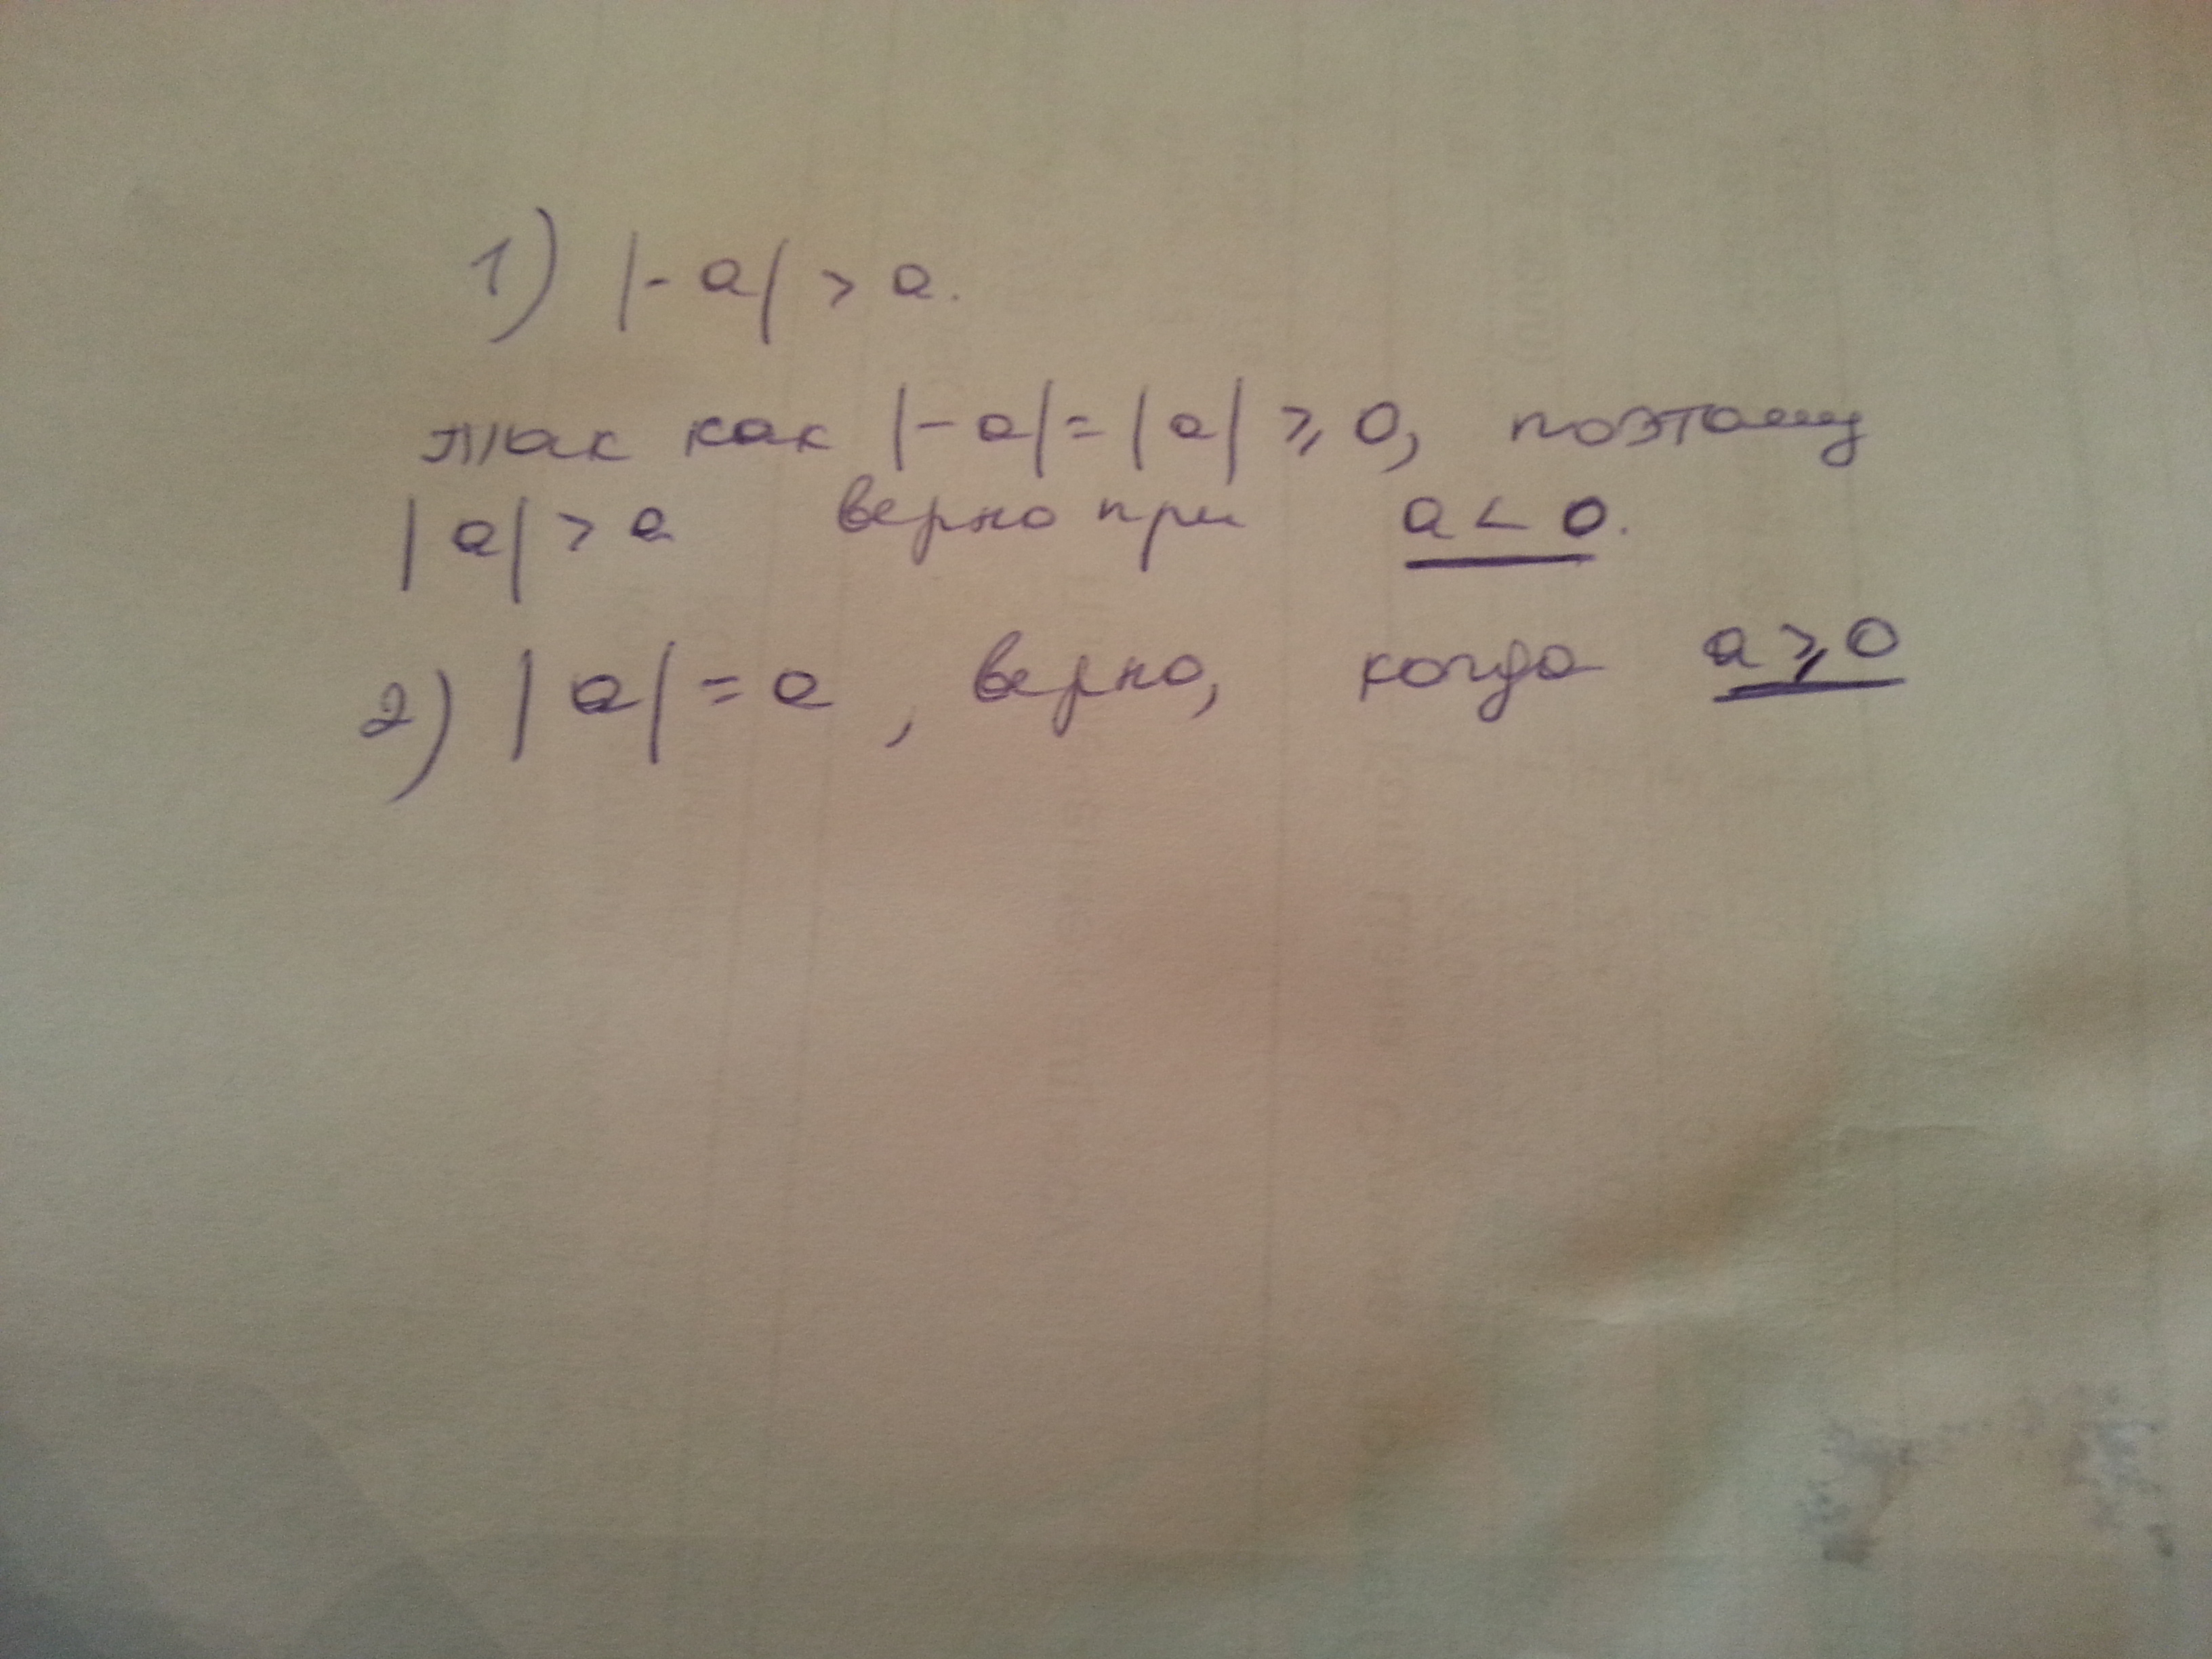 1) |-a| > a.
так как |-a| = |a| ⩾ 0, поэтому
|a| > a верно при a < 0.
2) |a| = a, верно, когда a ⩾ 0